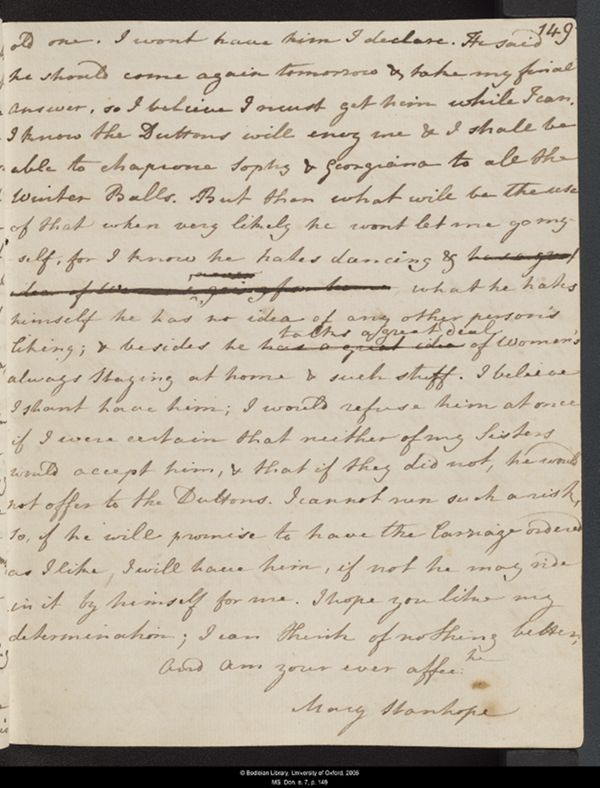 149
old one. I wont have him I declare. He said
he should come again tomorrow & take my final
answer, so I believe I must get him while I can.
I know the Duttons will envy me & I shall be
able to chaprone Sophy & Georgiana to all the
Winter Balls. But then what will be the use
of that when very likely he wont let me go my-
self, for I know he hates dancing & has a great
idea of Womens never going from home what he hates
himself he has no idea of any other person's
talks a great deal
liking; & besides he has a great idea of Women's
always Staying at home & such stuff. I believe
I shant have him; I would refuse him at once
if I were certain that neither of my Sisters
would accept him, & that if they did not, he would
not offer to the Duttons. I cannot run such a risk,
so, if he will promise to have the Carriage ordered
as I like, I will have him, if not he may ride
in it by himself for me. I hope you like my
determination; I can think of nothing better;
And am your ever affec:te
Mary Stanhope
© Bodleian Library, University of Oxford, 2006
MS. Don. e. 7, p. 149